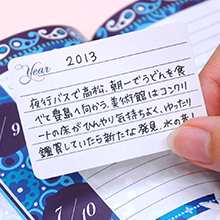 2013
Year
夜行バスで高松、朝一でうどんを食
べて豊島へ向かう。美術館はコンクリ
ートの床がひんやり気持ちよく、ゆったり
鑑賞していたら新たな発見。水の美し
9
7/10